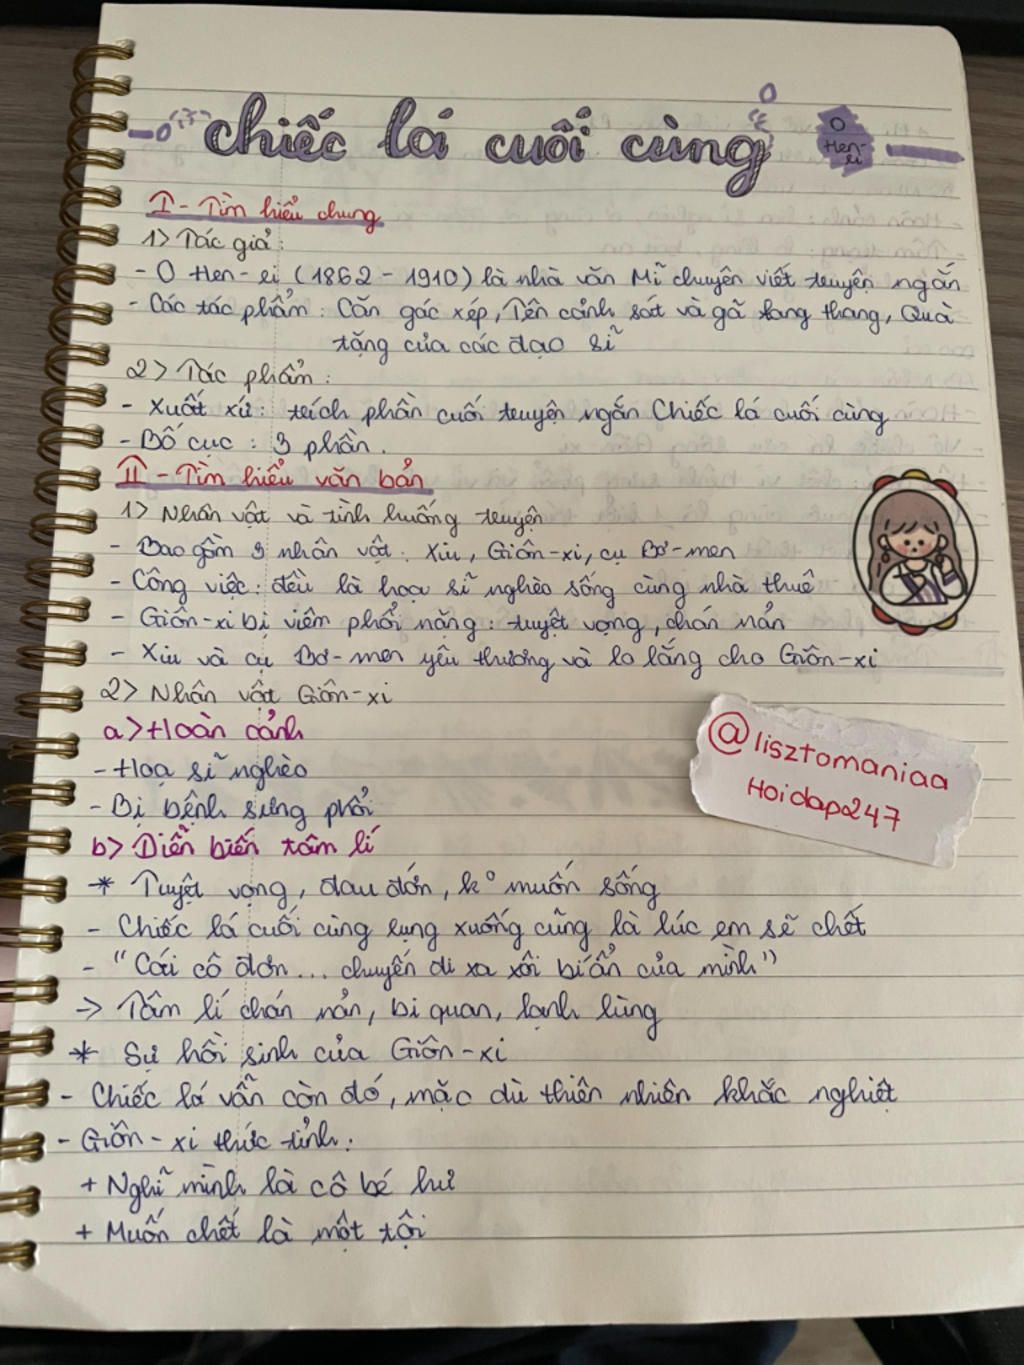 chiếc lá cuối cùng
O
Hen-
ri
I - Tìm hiểu chung
1> Tác giả:
- O Hen-ri (1862 - 1910) là nhà văn Mĩ chuyên viết truyện ngắn
- Các tác phẩm: Căn gác xép, Tên cảnh sát và gã lang thang, Quà
tặng của các đạo sĩ
2> Tác phẩm:
- Xuất xứ: trích phần cuối truyện ngắn Chiếc lá cuối cùng
- Bố cục: 3 phần.
II - Tìm hiểu văn bản
1> Nhân vật và tình huống truyện
- Bao gồm 3 nhân vật: Xiu, Giôn-xi, cụ Bơ-men
- Công việc: đều là hoạ sĩ nghèo sống cùng nhà thuê
- Giôn-xi bị viêm phổi nặng: tuyệt vọng, chán nản
- Xiu và cụ Bơ-men yêu thương và lo lắng cho Giôn-xi
2> Nhân vật Giôn-xi
a> Hoàn cảnh
- Hoạ sĩ nghèo
- Bị bệnh sưng phổi
@lisztomaniaa
Hoidap247
b> Diễn biến tâm lí
* Tuyệt vọng, đau đớn, k° muốn sống
- Chiếc lá cuối cùng rụng xuống cũng là lúc em sẽ chết
- "Cái cô đơn... chuyến đi xa xôi bí ẩn của mình"
-> Tâm lí chán nản, bi quan, lạnh lùng
* Sự hồi sinh của Giôn-xi
- Chiếc lá vẫn còn đó, mặc dù thiên nhiên khắc nghiệt
- Giôn-xi thức tỉnh:
+ Nghĩ mình là cô bé hư
+ Muốn chết là một tội